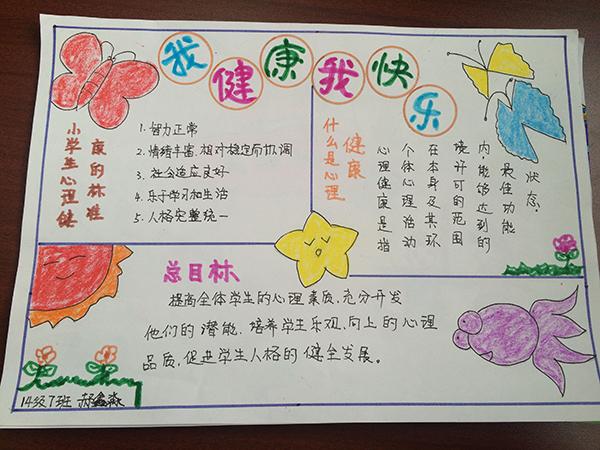 我健康我快乐
小学生心理健
康的标准
1. 智力正常
2. 情绪丰富、相对稳定而协调
3. 社会适应良好
4. 乐于学习和生活
5. 人格完整统一
什么是心理
健康
心理健康是指
个体心理活动
在本身及其环
境许可的范围
内,能够达到的
最佳功能
状态.
总目标
提高全体学生的心理素质,充分开发
他们的潜能、培养学生乐观、向上的心理
品质,促进学生人格的健全发展。
14级7班 郝鑫淼